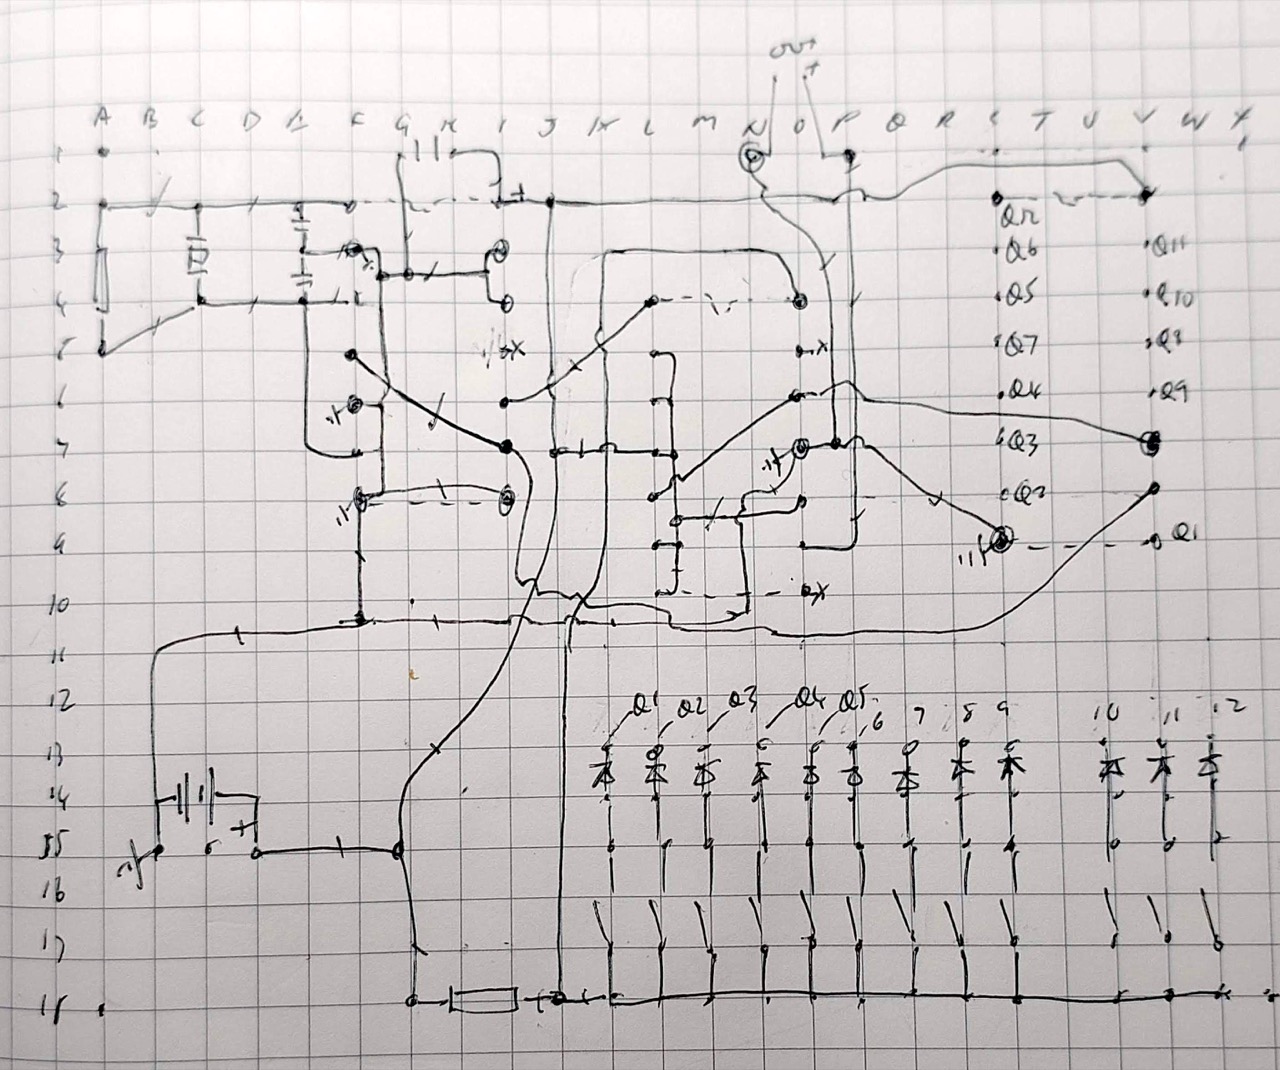 out
+
A B C D E F G H I J K L M N O P Q R S T U V W X
1
2 +
Q12
3 Q6 Q11
4 Q5 Q10
5 x x Q7 Q8
6 Q4 Q9
7 Q3
8 Q2
9 Q1
10 x
11
12
Q1 Q2 Q3 Q4 Q5 6 7 8 9 10 11 12
13
14
+
15
16
17
18